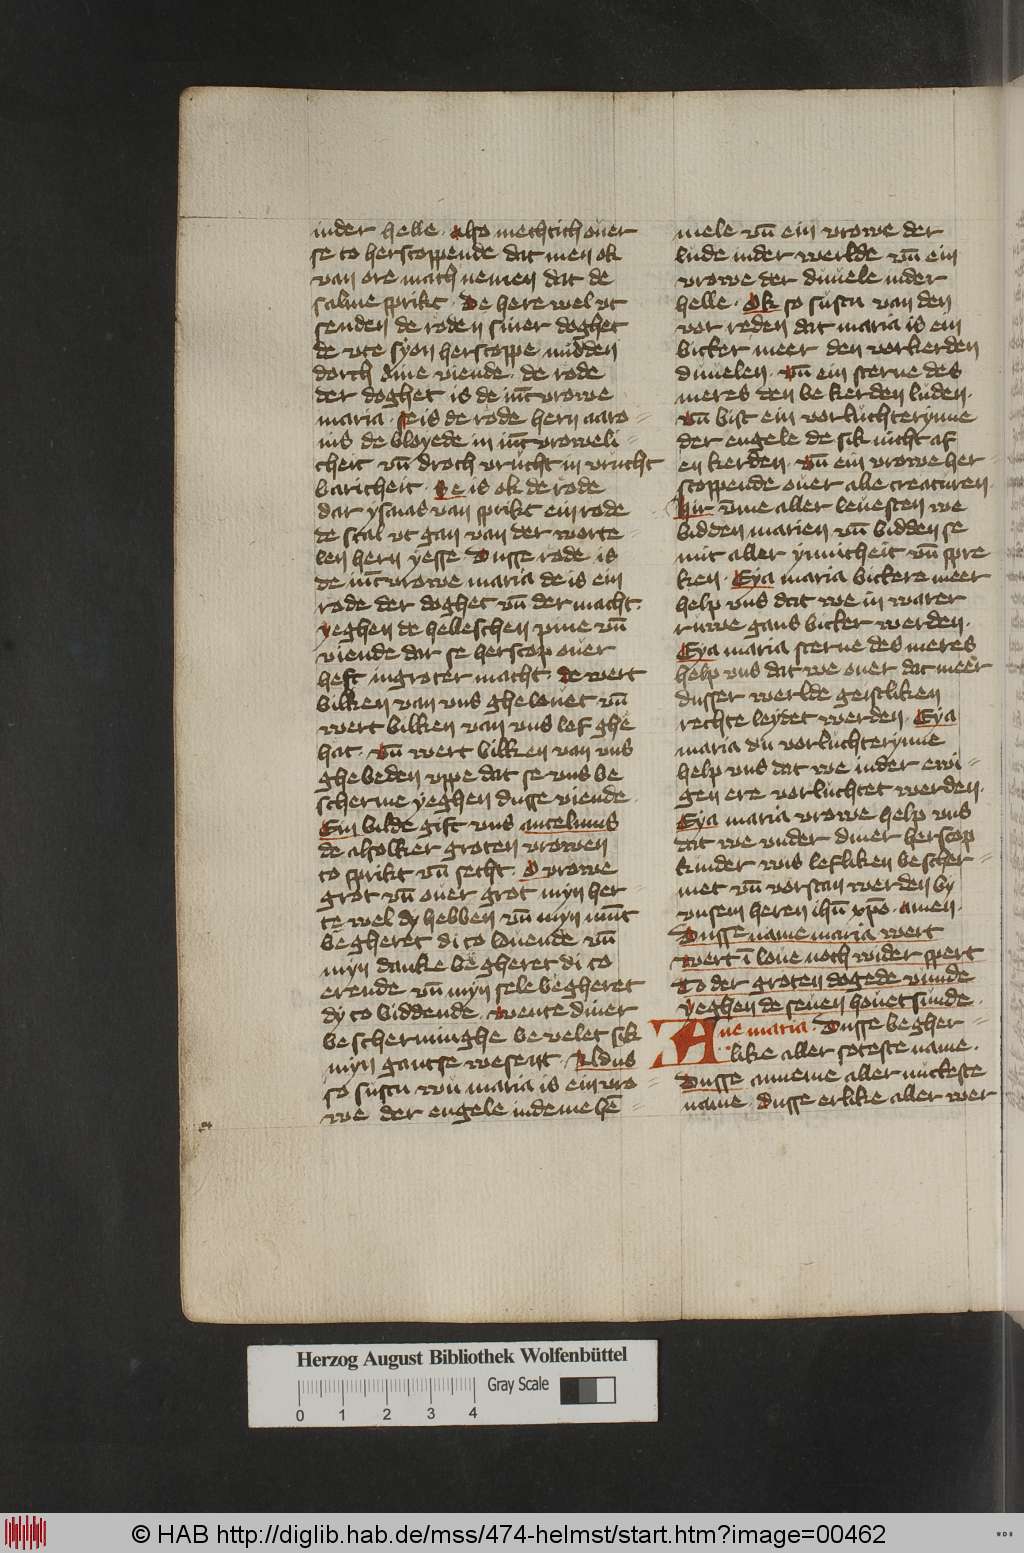 inder helle. Also mechtich ouer
se to herscoppende dat men ok
van ore mach nemen dat de
salme sprikt. De here wel vt
senden de roden siner doghet
de vte syon herscoppe midden
dorch dine viende. de rode
der doghet is de iūcvrowe
maria. Se is de rode hern aaro=
nis de bloyede in iūcvroweli=
cheit vn̄ droch vrucht in vrucht
baricheit. Se is ok de rode
dar ysaias van sprikt ein rode
de scal vt gan van der worte=
len hern yesse Dusse rode is
de iūcvrowe maria de is ein
rode der doghet vn̄ der macht.
yeghen de helleschen pine vn̄
viende dar se herscop ouer
heft in groter macht. de wert
bilken van vns ghelouet vn̄
wert bilken van vns lef ghe
hat. Vn̄ wert bilken van vns
ghebeden vppe dat se vns be
scherme yeghen dusse viende.
Ein bilde gift vns ancelmus
de alsolker groten vrowen
to sprikt vn̄ secht. O vrowe
grot vn̄ ouer grot myn her=
te wel dy hebben vn̄ myn mūt
begheret di to louende vn̄
myn danke begheret di to
erende vn̄ myn sele begheret
dy to biddende. wente diner
bescherminghe beuelet sik
myn gantse wesent. Aldus
so sustu wū maria is ein vro=
we der engele in deme hē=
mele vn̄ ein vrowe der
lude inder werlde vn̄ ein
vrowe der duuele inder
helle. Ok so sustu van den
vor reden dat maria is ein
bicker meer den vorkerden
duuelen. Vn̄ ein sterne des
meres den bekerden luden.
Vn̄ bist ein vorluchterynne
der engele de sik nicht af
en kerden. Vn̄ ein vrowe her=
scoppende ouer alle creaturen.
Hir vme aller leuesten we
bidden marien vn̄ bidden se
mit aller ynnicheit vn̄ spre
ken. Eya maria bickere meer
help vns dat we in warer
ruwe gans bicker werden.
Eya maria sterne des meres
help vns dat we ouer dat meer
dusser werlde geistliken
rechte leydet werden. Eya
maria du vorluchterynne
help vns dat we inder ewi=
gen ere vorluchtet werden.
Eya maria vrowe help vns
dat we vnder diner herscop
kinder wis lefliken bescher=
met vn̄ vorstan werden by
vnsem heren ihū xp̄o. amen.
Dusse name maria wert
wert ī loue noch wider spert
To der groten dogede vunde
yeghen de seuen houetsunde.
Aue maria. Dusse begher=
like aller soteste name.
Dusse anneme aller nuckeste
name. Dusse erlike aller wer
Herzog August Bibliothek Wolfenbüttel
Gray Scale
0 1 2 3 4
© HAB http://diglib.hab.de/mss/474-helmst/start.htm?image=00462